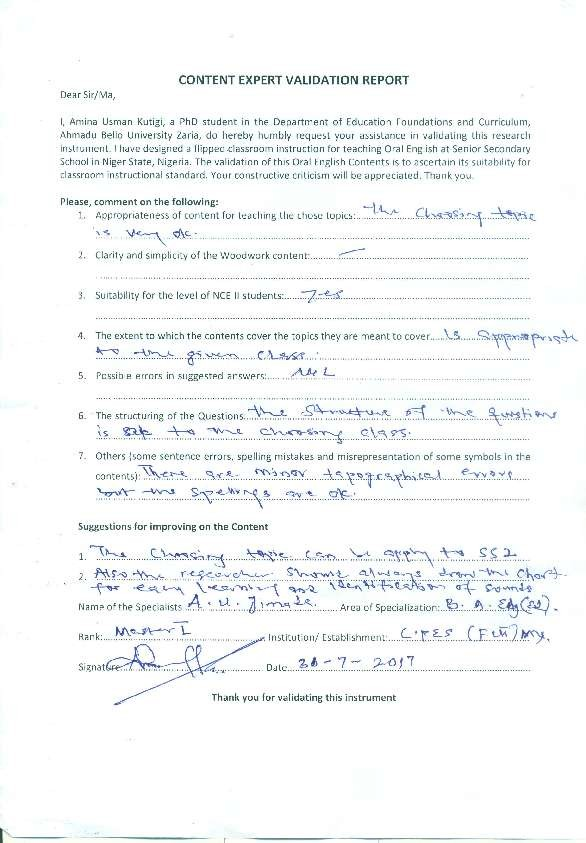 CONTENT EXPERT VALIDATION REPORT
Dear Sir/Ma,
I, Amina Usman Kutigi, a PhD student in the Department of Education Foundations and Curriculum,
Ahmadu Bello University Zaria, do hereby humbly request your assistance in validating this research
instrument. I have designed a flipped classroom instruction for teaching Oral English at Senior Secondary
School in Niger State, Nigeria. The validation of this Oral English Contents is to ascertain its suitability for
classroom instructional standard. Your constructive criticism will be appreciated. Thank you.
Please, comment on the following:
1. Appropriateness of content for teaching the chose topics: The Choosing topic
is very ok.
2. Clarity and simplicity of the Woodwork content:
3. Suitability for the level of NCE II students: Yes
4. The extent to which the contents cover the topics they are meant to cover Is appropriate
to the given class.
5. Possible errors in suggested answers: Nil
6. The structuring of the Questions the structure of the questions
is ok to the choosing class.
7. Others (some sentence errors, spelling mistakes and misrepresentation of some symbols in the
contents): There are minor topographical errors
but the spellings are ok.
Suggestions for improving on the Content
1. The Choosing topic can be apply to SS2
2. Also the researcher should always draw the chart
for easy learning and identification of sounds
Name of the Specialists A. U. Jimada Area of Specialization: B. A.
Rank: Master I Institution/ Establishment:
Signature Date 31-7-2017
Thank you for validating this instrument